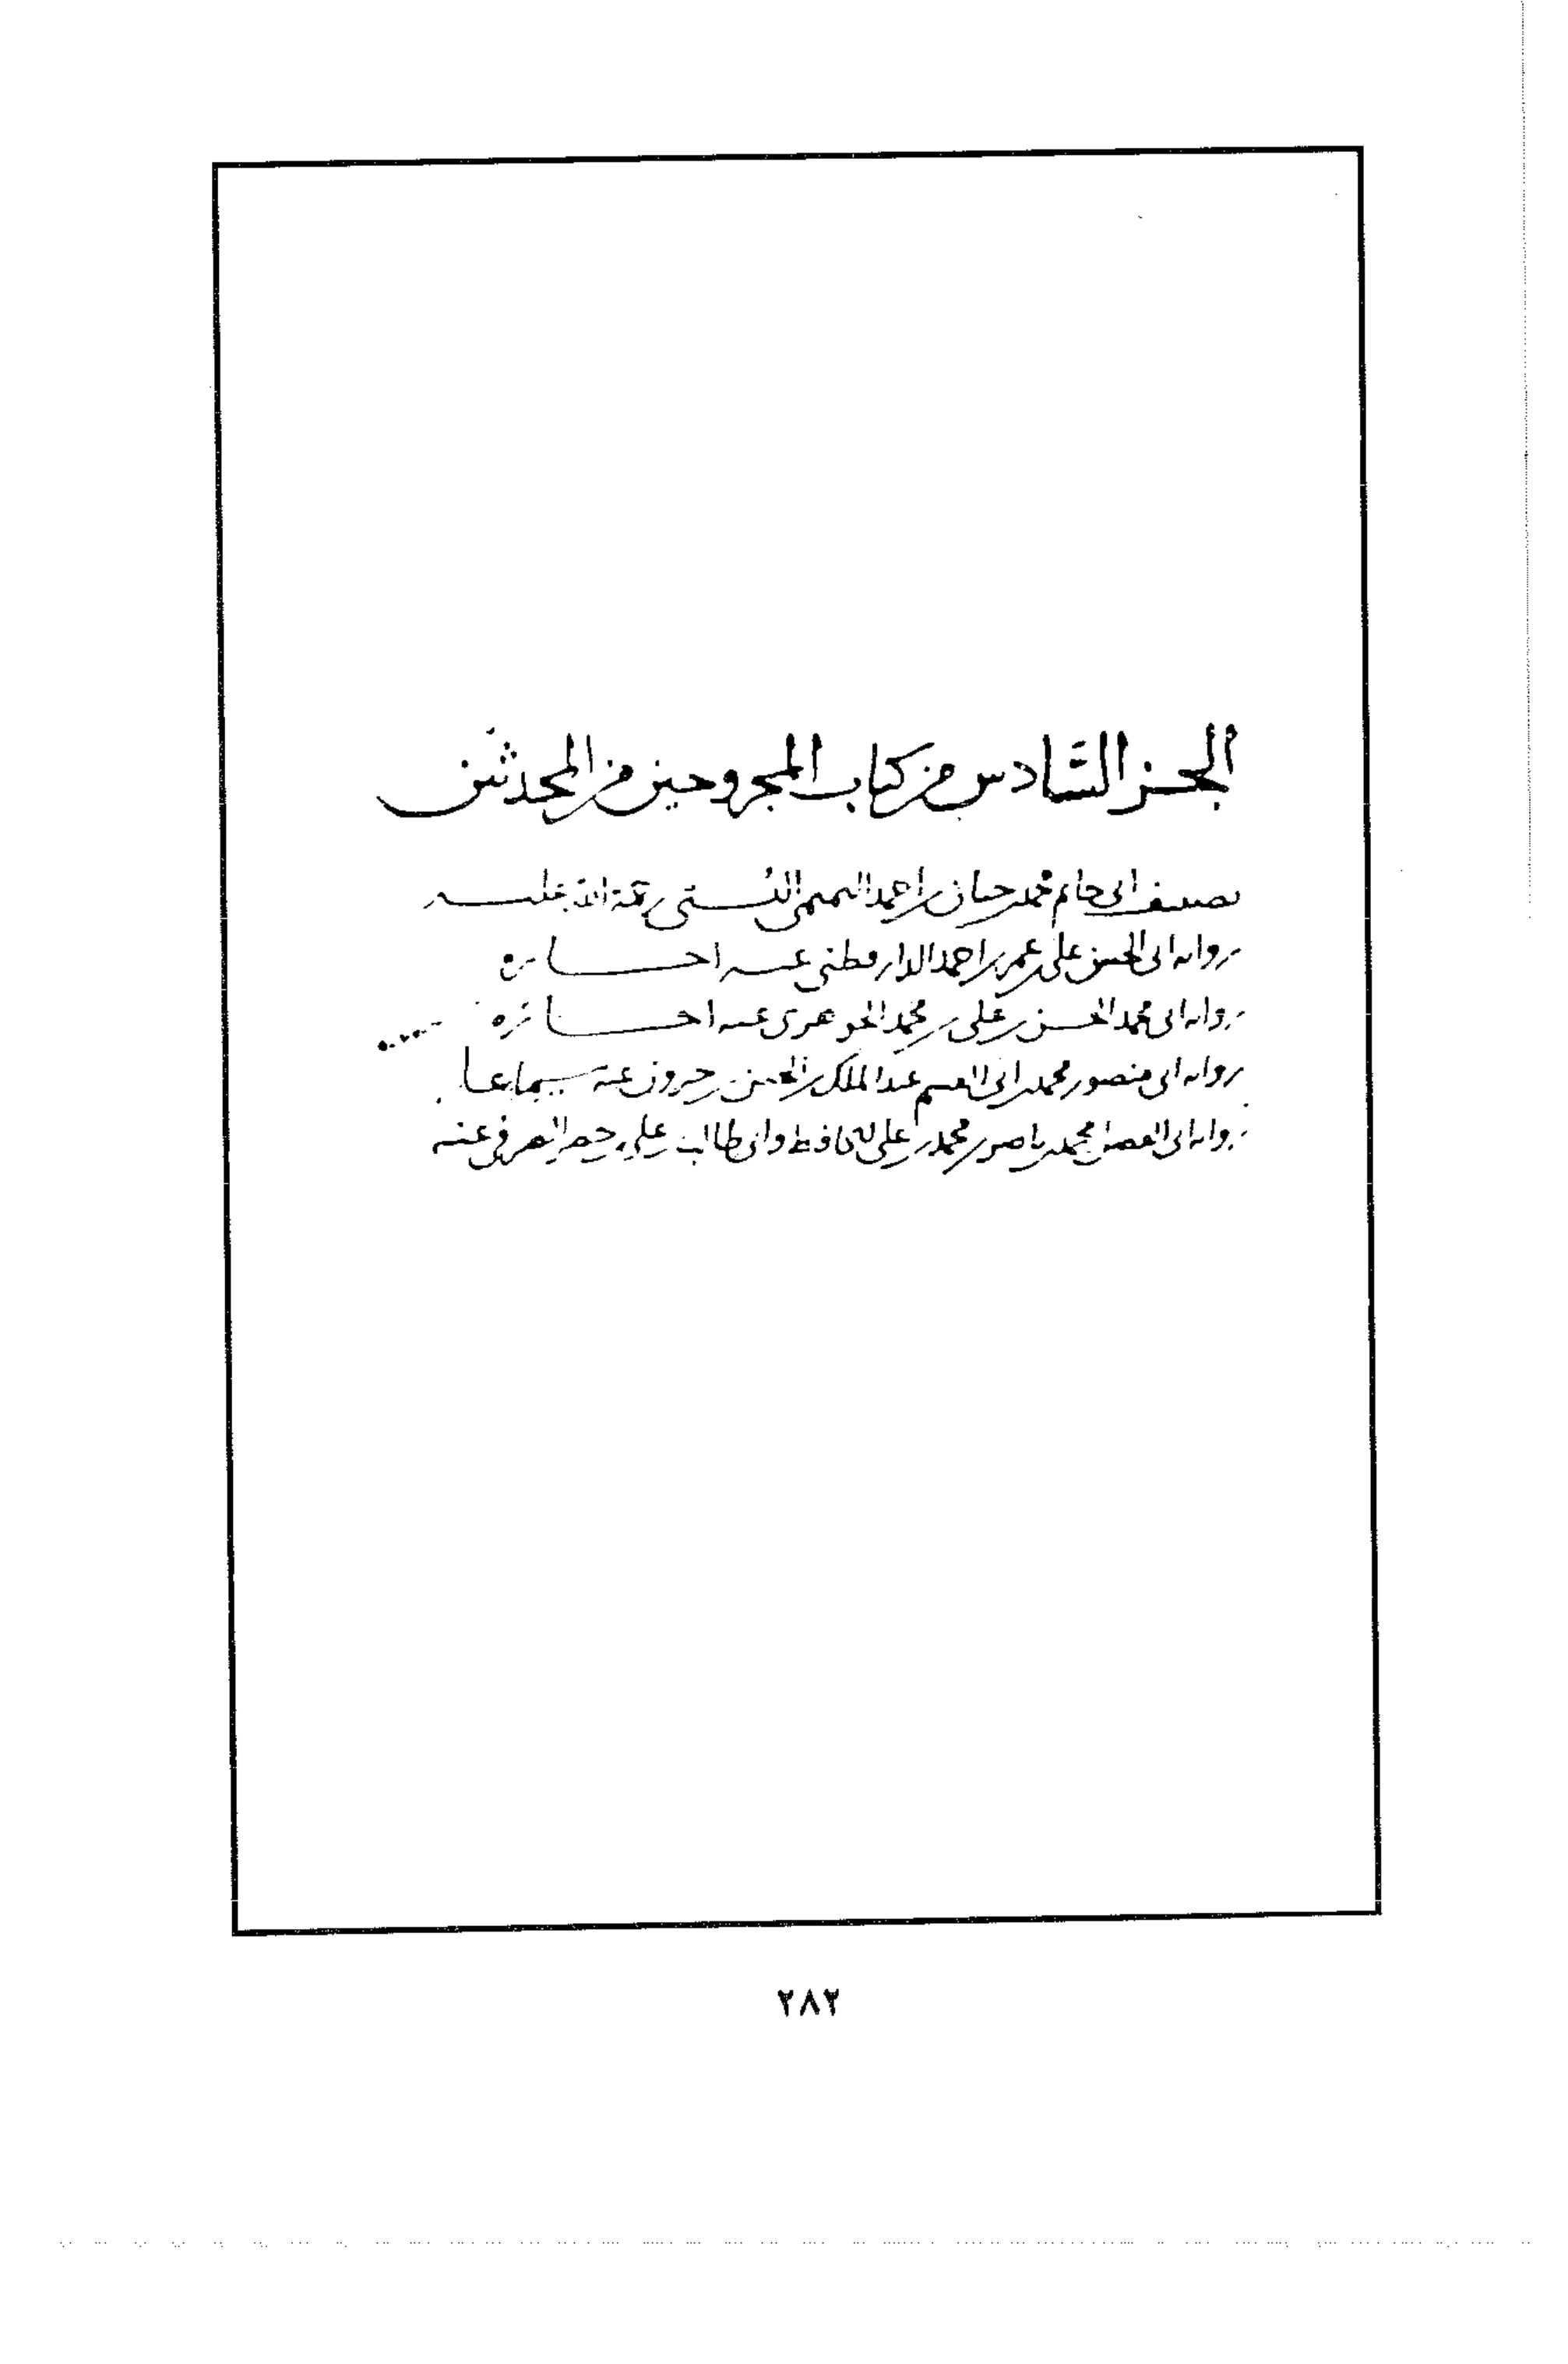 الجزء السادس من كتاب المجروحين من المحدثين
تصنيف ابي حاتم محمد بن حبان بن احمد التميمي البستي رحمة الله عليه
رواية ابي الحسن علي بن عمر بن احمد الدارقطني عنه اجازة
رواية ابي محمد الحسن بن علي بن محمد الجوهري عنه اجازة
رواية ابي منصور محمد بن ابي القسم عبد الملك بن الحسن بن خيرون عنه سماعا
رواية ابي الفضل محمد بن ناصر بن محمد بن علي الحافظ وابي طالب علي بن عنه
٢٨٢